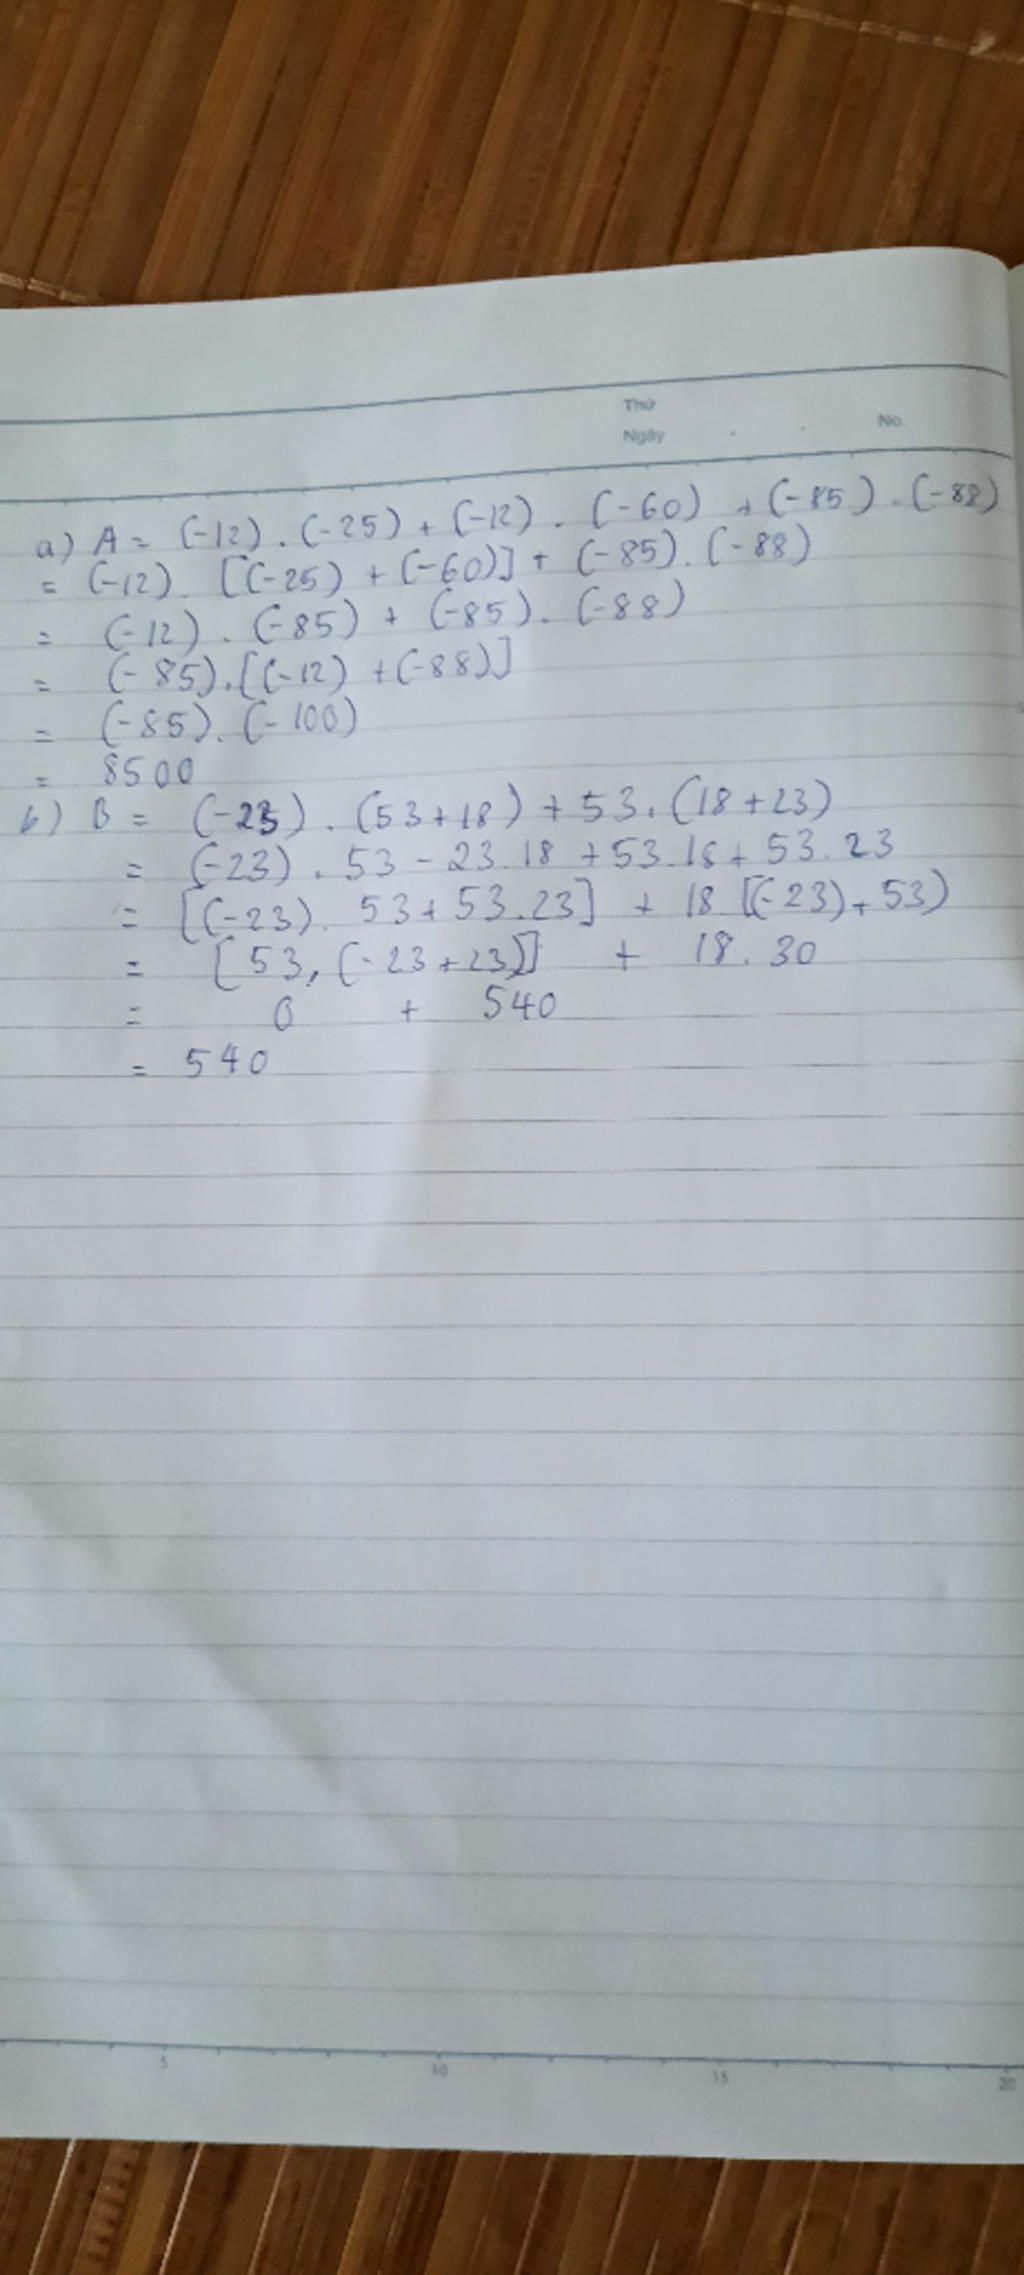 Thứ
Ngày . . No.
a) A = (-12) . (-25) + (-12) . (-60) + (-85) . (-88)
= (-12) . [(-25) + (-60)] + (-85) . (-88)
= (-12) . (-85) + (-85) . (-88)
= (-85) . [(-12) + (-88)]
= (-85) . (-100)
= 8500
b) B = (-23) . (53 + 18) + 53 . (18 + 23)
= (-23) . 53 - 23 . 18 + 53 . 18 + 53 . 23
= [(-23) . 53 + 53 . 23] + 18 . [(-23) + 53)
= [53 . (-23 + 23)] + 18 . 30
= 0 + 540
= 540
5 10 15 20